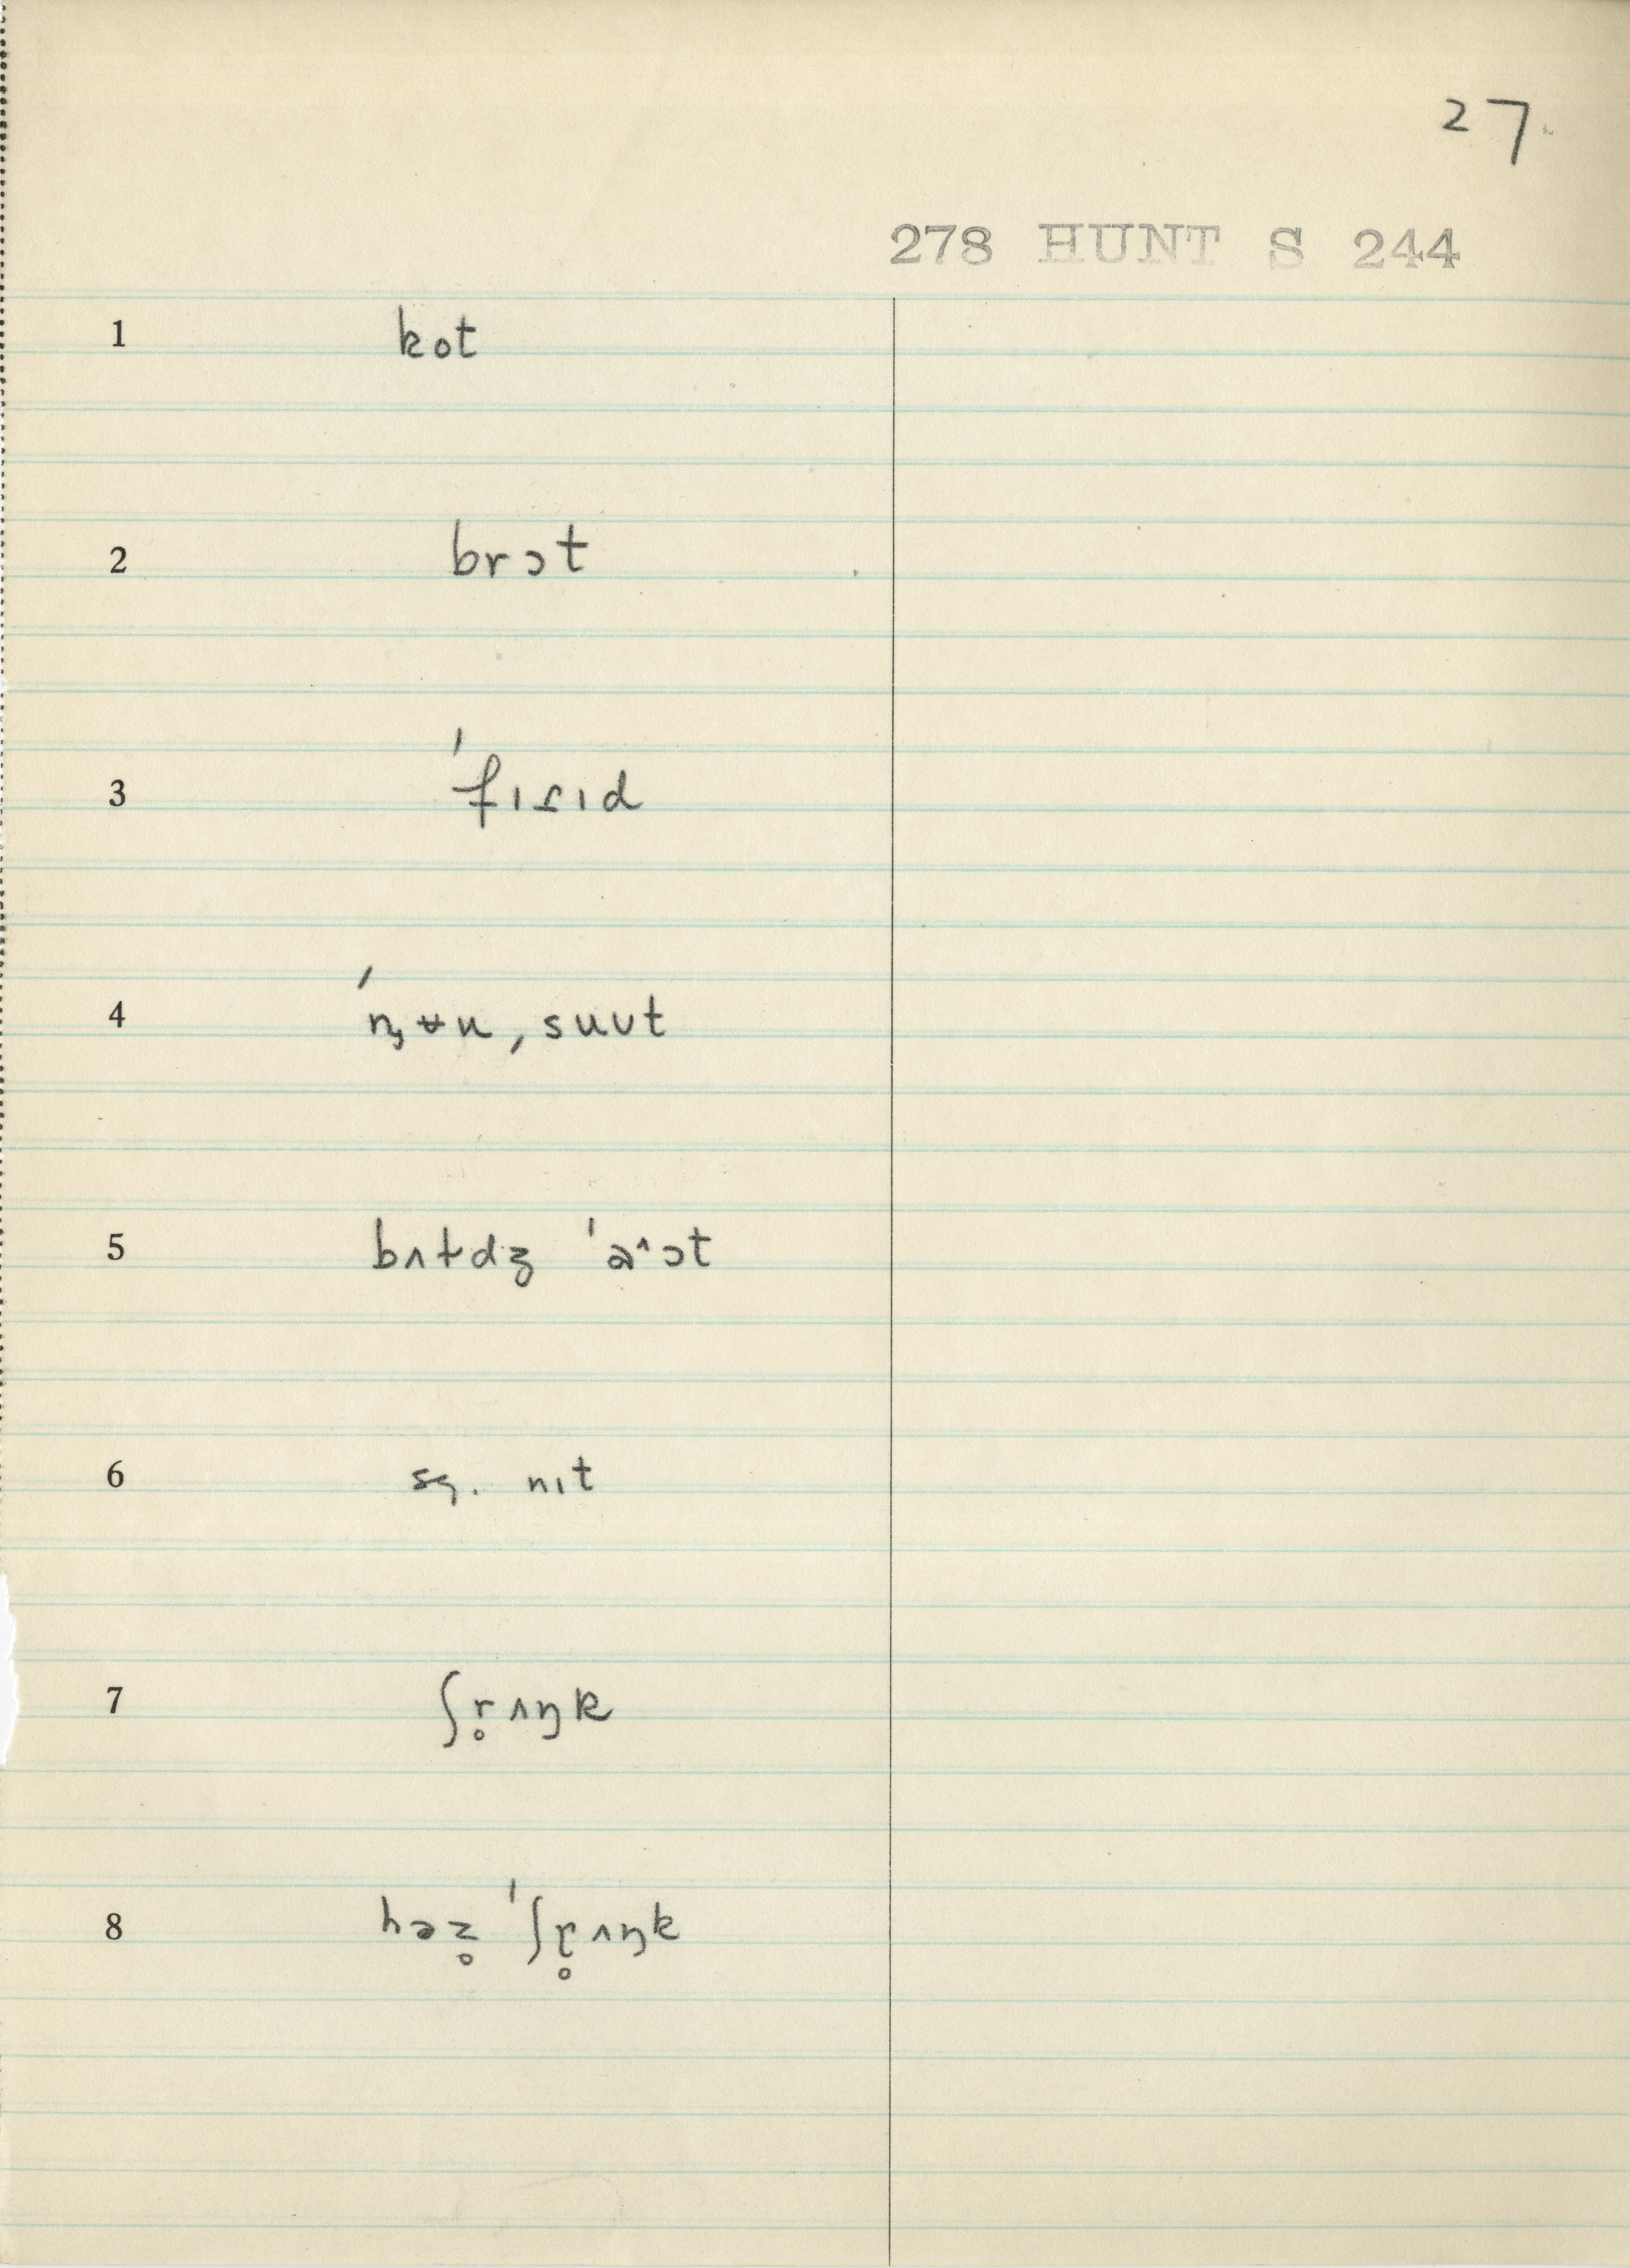 27.
278 HUNT S 244
1 kot
2 brɔt
3 ˈfɪɾɪd
4 ˈnʒʉuˌsuʊt
5 bʌɫdʒ ˈaˆɔt
6 sɜ. nɪt
7 ʃr̥ʌŋk
8 həz̥ ˈʃɽ̊ʌŋk